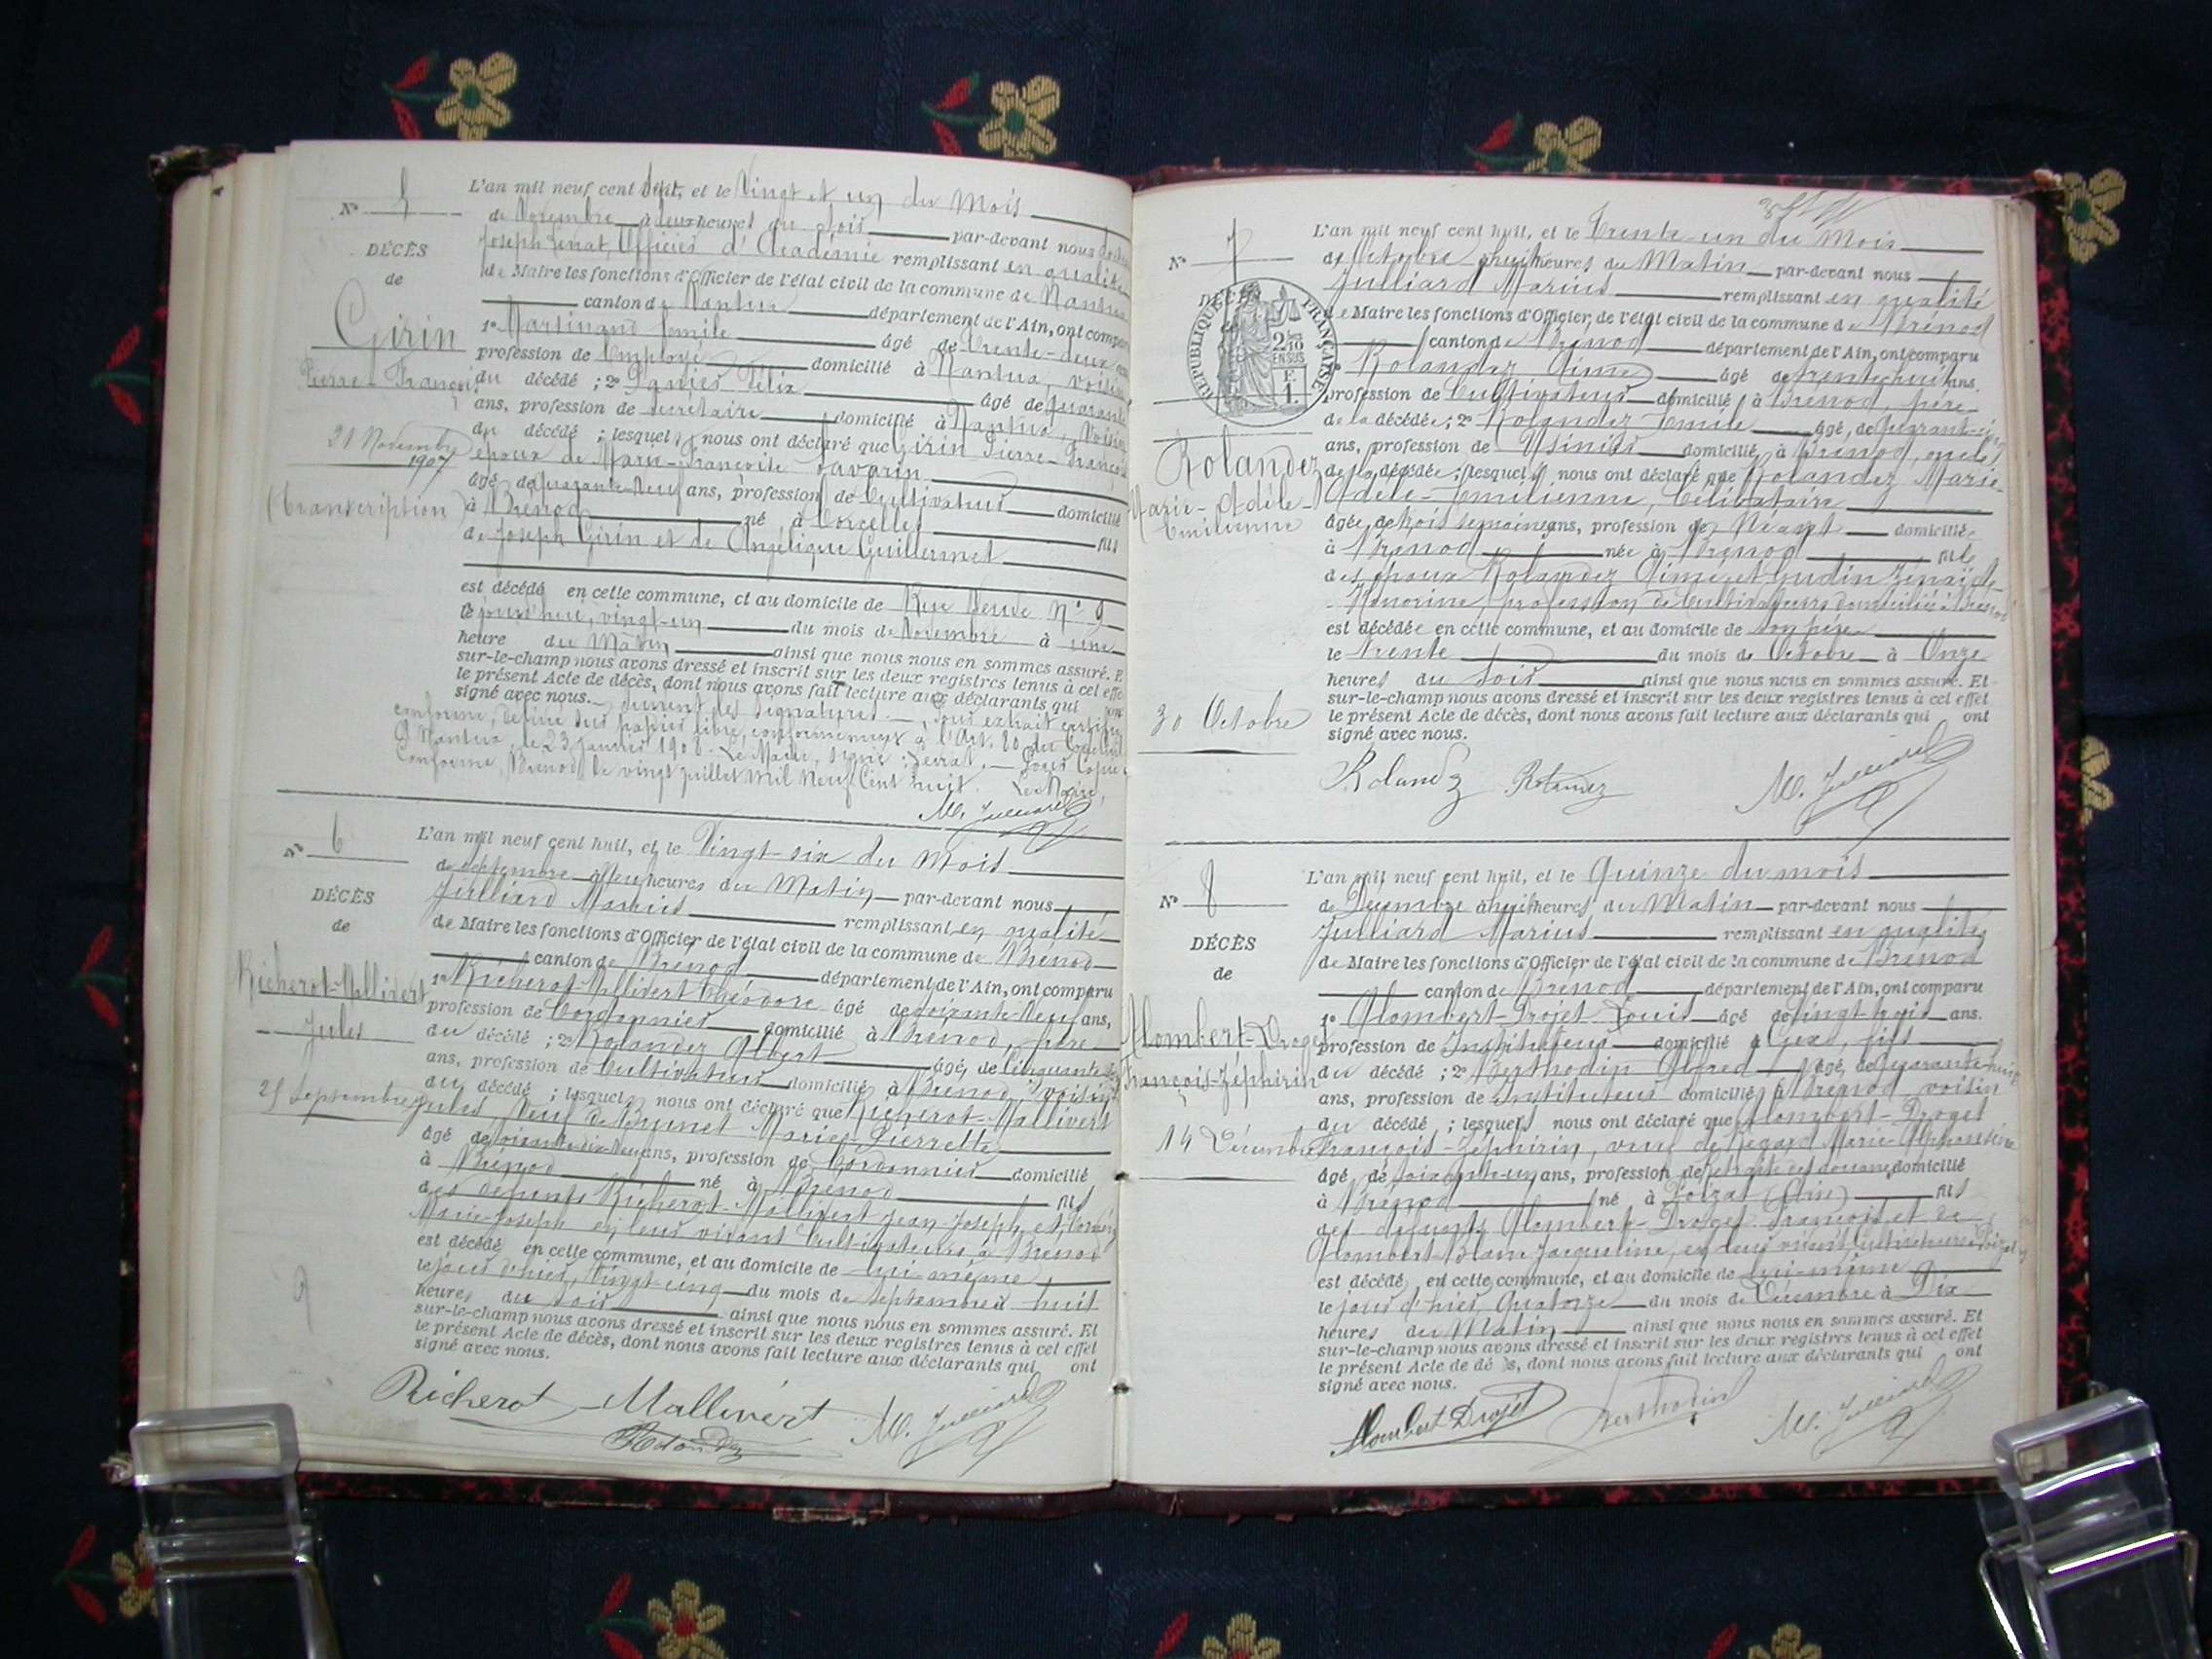 N° 5
DÉCÈS
de
Girin
Pierre-François
21 Novembre
1907
(Transcription)
L'an mil neuf cent sept, et le Vingt et un du Mois
de Novembre à deux heures du soir par-devant nous
Joseph Officier d'Académie remplissant en qualité
de Maire les fonctions d'Officier de l'état civil de la commune de Nantua
canton de Nantua département de l'Ain, ont comparu
1° Martinand Emile âgé de Trente-deux ans
profession de Employé domicilié à Nantua, voisin
du décédé ; 2° Panier Félix âgé de quarante
ans, profession de Secrétaire domicilié à Nantua, Voisin
du décédé ; lesquels nous ont déclaré que Girin Pierre-François
époux de Marie-Françoise Savarin
âgé de quarante-neuf ans, profession de Cultivateur domicilié
à Brénod né à Corcelles fils
de Joseph Girin et de Angélique Guillermet
est décédé en cette commune, et au domicile de Rue Neuve N° 9
le jourd'hui, vingt-un du mois de Novembre à une
heure du Matin ainsi que nous nous en sommes assuré. E
sur-le-champ nous avons dressé et inscrit sur les deux registres tenus à cet effe
le présent Acte de décès, dont nous avons fait lecture aux déclarants qui ont
signé avec nous. Suivent les signatures. Pour extrait certifié
conforme, délivré sur papier libre, conformément à l'Art. 80 du Code civil
à Nantua, le 23 janvier 1908. Le Maire, signé : Pour Copie
Conforme, Brénod le vingt juillet mil neuf Cent huit. Le Maire,
M. Julliard
N° 6
DÉCÈS
de
Richerot-Mallivert
Jules
25 Septembre
L'an mil neuf cent huit, et le Vingt-six du Mois
de Septembre à neuf heures du Matin par-devant nous
Julliard Marius remplissant en qualité
de Maire les fonctions d'Officier de l'état civil de la commune de Brénod
canton de Brénod département de l'Ain, ont comparu
1° Richerot-Mallivert Théodore âgé de soixante-neuf ans,
profession de Cordonnier domicilié à Brénod, frère
du décédé ; 2° Rolandez Albert âgé, de Cinquante
ans, profession de Cultivateur domicilié à Brénod, voisin
du décédé ; lesquels nous ont déclaré que Richerot-Mallivert
Jules, Veuf de Brunet Marie-Pierrette
âgé de soixante-dix-neuf ans, profession de Cordonnier domicilié
à Brénod né à Brénod fils
des défunts Richerot-Mallivert Jean-Joseph et
Marie-Joseph en leur vivant Cultivateurs à Brénod
est décédé en cette commune, et au domicile de lui-même
le jour d'hier, Vingt-cinq du mois de Septembre à huit
heures du soir ainsi que nous nous en sommes assuré. Et
sur-le-champ nous avons dressé et inscrit sur les deux registres tenus à cet effet
le présent Acte de décès, dont nous avons fait lecture aux déclarants qui ont
signé avec nous.
Richerot-Mallivert M. Julliard
Rolandez
N° 7
DÉCÈS
RÉPUBLIQUE FRANÇAISE
2/10 EN SUS
F. 1.
Rolandez
Marie-Adèle-
Emilienne
30 Octobre
L'an mil neuf cent huit, et le Trente-un du Mois
de Octobre à huit heures du Matin par-devant nous
Julliard Marius remplissant en qualité
de Maire les fonctions d'Officier de l'état civil de la commune de Brénod
canton de Brénod département de l'Ain, ont comparu
Rolandez Aimé âgé de trente-huit ans.
profession de Cultivateur domicilié à Brénod, père
de la décédée ; 2° Rolandez Emile âgé, de quarante-cinq
ans, profession de Usinier domicilié à Brénod, oncle
de la décédée ; lesquels nous ont déclaré que Rolandez Marie-
Adèle-Emilienne, Célibataire
âgée de trois semaines ans, profession de Néant domiciliée
à Brénod née à Brénod fille
des époux Rolandez Aimé et Gudin Zénaïde-
Honorine, profession de Cultivateurs domiciliés à Brénod
est décédée en cette commune, et au domicile de son père
le Trente du mois de Octobre à Onze
heures du soir ainsi que nous nous en sommes assuré. Et
sur-le-champ nous avons dressé et inscrit sur les deux registres tenus à cet effet
le présent Acte de décès, dont nous avons fait lecture aux déclarants qui ont
signé avec nous.
Rolandez Rolandez M. Julliard
N° 8
DÉCÈS
de
Alombert-Droget
François-Zéphirin
14 Décembre
L'an mil neuf cent huit, et le Quinze du mois
de Décembre à huit heures du Matin par-devant nous
Julliard Marius remplissant en qualité
de Maire les fonctions d'Officier de l'état civil de la commune de Brénod
canton de Brénod département de l'Ain, ont comparu
1° Alombert-Droget Louis âgé de Vingt-trois ans.
profession de Instituteur domicilié à Gex, fils
du décédé ; 2° Berthodin Alfred âgé, de quarante-huit
ans, profession de Instituteur domicilié à Brénod voisin
du décédé ; lesquels nous ont déclaré que Alombert-Droget
François-Zéphirin, veuf de Regard Marie Alphonsine
âgé de soixante-un ans, profession de retraité des douanes domicilié
à Brénod né à Poizat (Ain) fils
des défunts Alombert-Droget François et de
Alombert-Blanc Jacqueline, en leur vivant cultivateurs à Poizat
est décédé, en cette commune, et au domicile de lui-même
le jour d'hier Quatorze du mois de Décembre à Dix
heures du Matin ainsi que nous nous en sommes assuré. Et
sur-le-champ nous avons dressé et inscrit sur les deux registres tenus à cet effet
le présent Acte de décès, dont nous avons fait lecture aux déclarants qui ont
signé avec nous.
Alombert Droget Berthodin M. Julliard